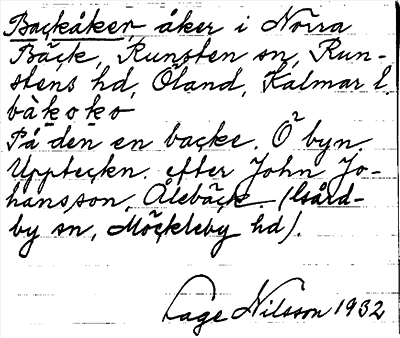 Backåker, åker i Norra
Bäck, Runsten sn, Run-
stens hd, Öland, Kalmar l.
bàkoko
På den en backe. Ö byn.
Uppteckn. efter John Jo-
hansson, Alebäck (Gård-
by sn, Möckleby hd).
Lage Nilsson 1932